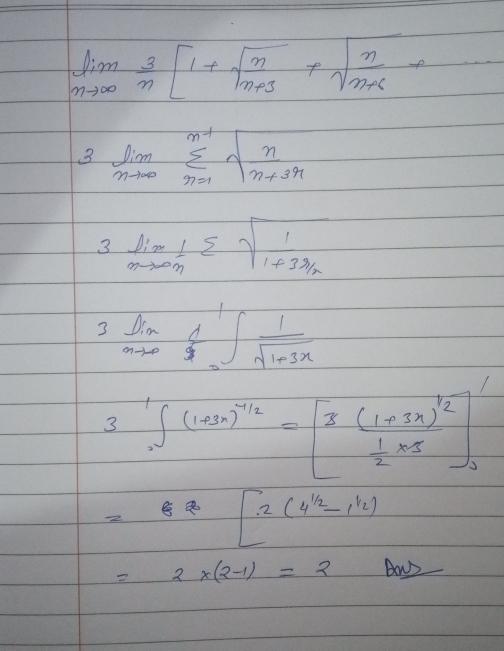 lim n→∞ 3/n [ 1 + √(n/(n+3)) + √(n/(n+6)) + ...
3 lim n→∞ Σ r=1 n-1 √(n/(n+3r))
3 lim n→∞ 1/n Σ √(1/(1+3r/n))
3 lim n→∞ ∫₀¹ 1/√(1+3x)
3 ∫₀¹ (1+3x)^(-1/2) = [ 3 (1+3x)^(1/2) / (1/2 × 3) ]₀¹
= [ .2 (4^(1/2) - 1^(1/2))
= 2 × (2-1) = 2 Ans